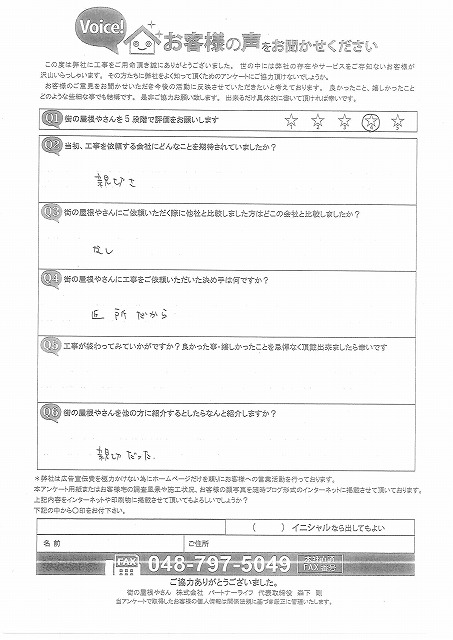 Voice!
お客様の声をお聞かせください
この度は弊社に工事をご用命頂き誠にありがとうございました。 世の中には弊社の存在やサービスをご存知ないお客様が
沢山いらっしゃいます。 その方たちに弊社をよく知って頂くためのアンケートにご協力頂けないでしょうか。
お客様のご意見をお聞かせいただき今後の活動に反映させていただきたいと考えております。 良かったこと、嬉しかったこと
どのような些細な事でも結構です。 是非ご協力お願い致します。 出来るだけ具体的に書いて頂ければ幸いです。
Q1 街の屋根やさんを5段階で評価をお願いします ☆1 ☆2 ☆3 ☆4 ☆5
Q2 当初、工事を依頼する会社にどんなことを期待されていましたか?
Q3 街の屋根やさんにご依頼いただく際に他社と比較しました方はどこの会社と比較しましたか?
なし
Q4 街の屋根やさんに工事をご依頼いただいた決め手は何ですか?
近所だから
Q5 工事が終わってみていかがですか?良かった事・嬉しかったことを忌憚なく頂戴出来ましたら幸いです
Q6 街の屋根やさんを他の方に紹介するとしたらなんと紹介しますか?
親切だった。
*弊社は広告宣伝費を極力かけない為にホームページだけを頼りにお客様への営業活動を行っております。
本アンケート用紙またはお客様宅の調査風景や施工状況、お客様の顔写真を随時ブログ形式のインターネットに掲載させて頂いております。
上記内容をインターネットや印刷物に掲載させて頂いてもよろしいでしょうか?
下記の中から○印をお付下さい。
( ) イニシャルなら出してもよい
名前 ご住所
FAX 048-797-5049
ご協力ありがとうございました。
街の屋根やさん 株式会社 パートナーライフ 代表取締役 森下 剛
当アンケートで取得したお客様の個人情報は関係法規に基づき厳正に管理いたします。